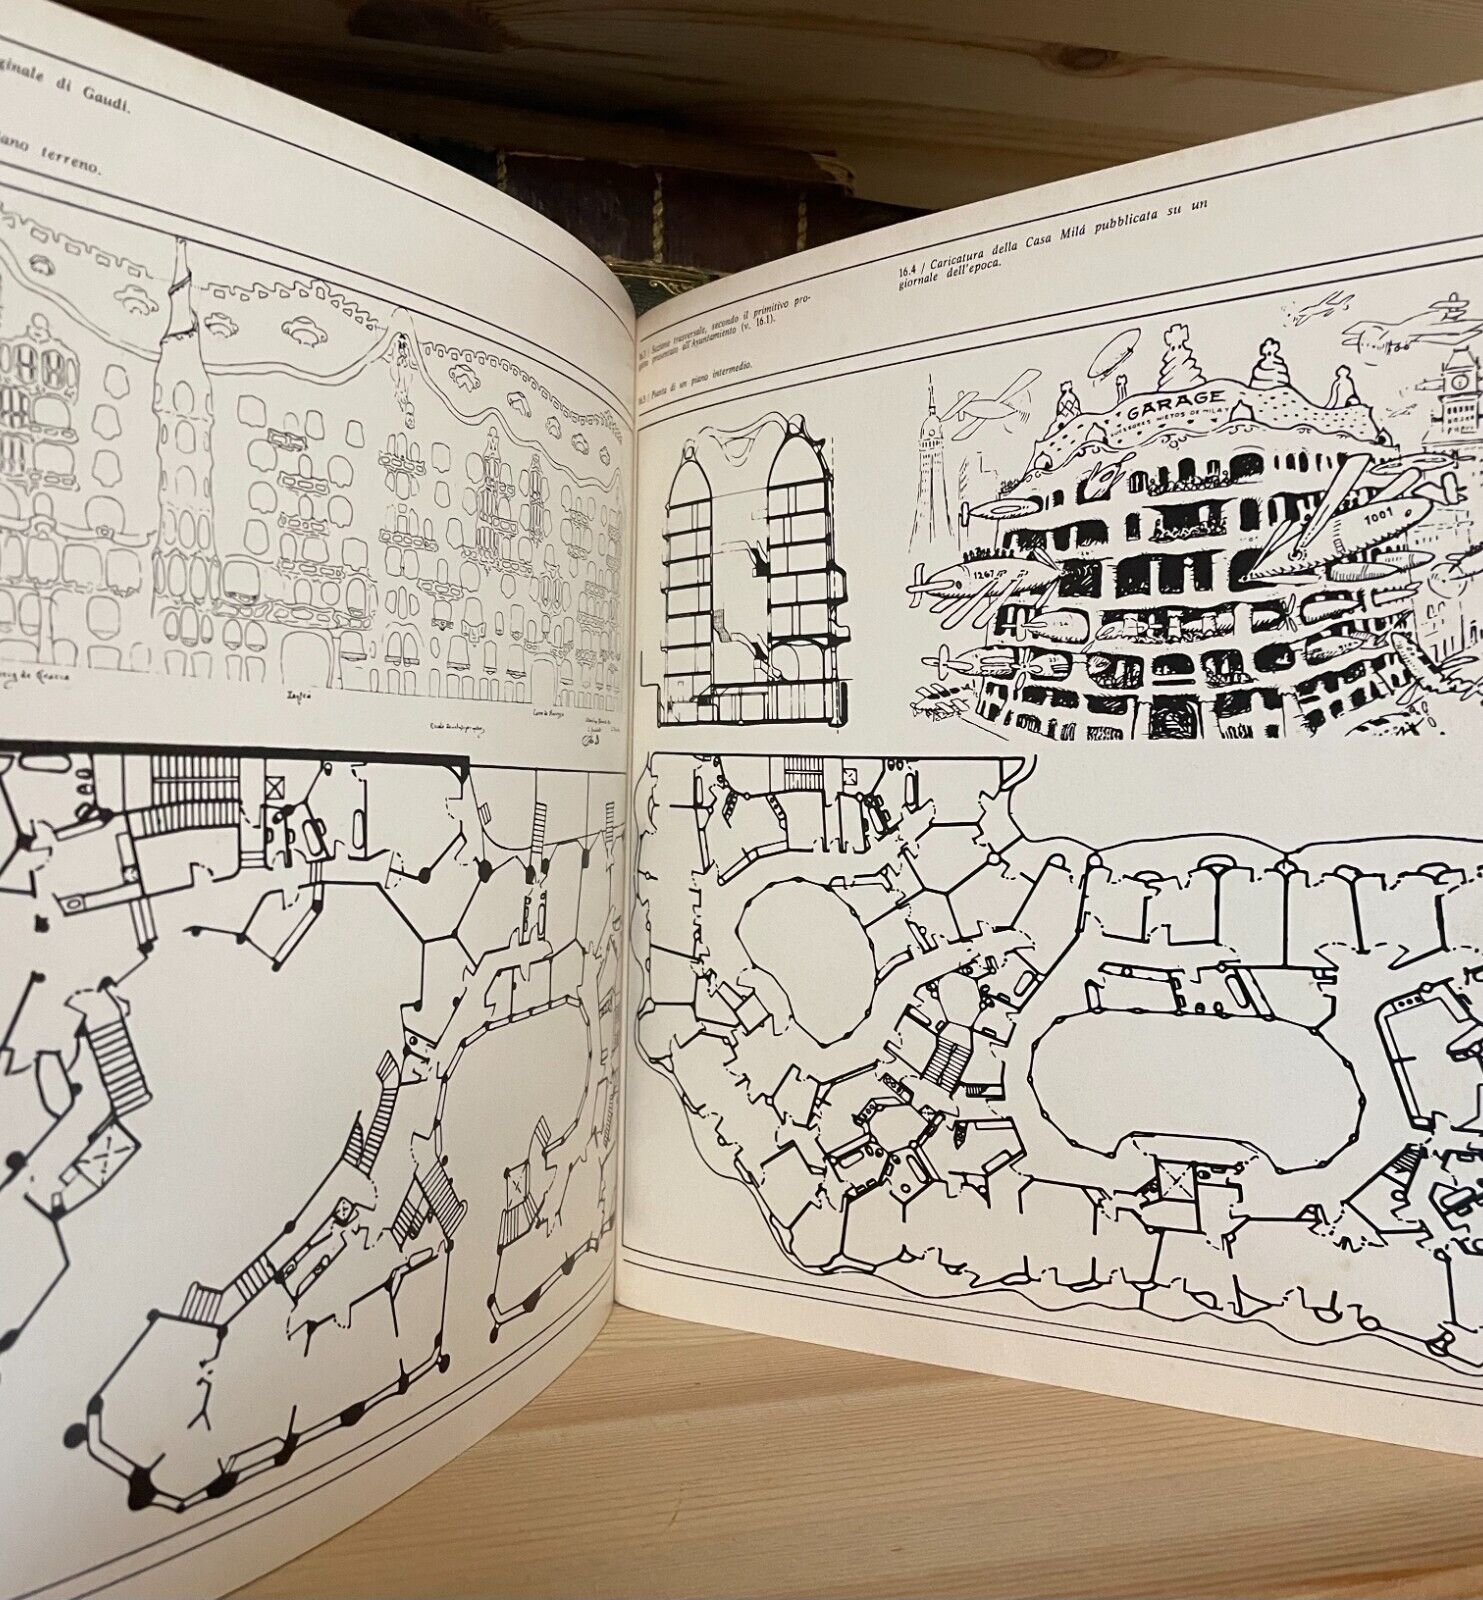 ginale di Gaudi.
iano terreno.
16.3 / Sezione trasversale, secondo il primitivo pro-
getto presentato all'Ayuntamiento (v. 16.1).
16.5 / Pianta di un piano intermedio.
16.4 / Caricatura della Casa Milá pubblicata su un
giornale dell'epoca.
GARAGE
SUSSORES NIETOS DE MILA Y
1001
1267
de Gracia